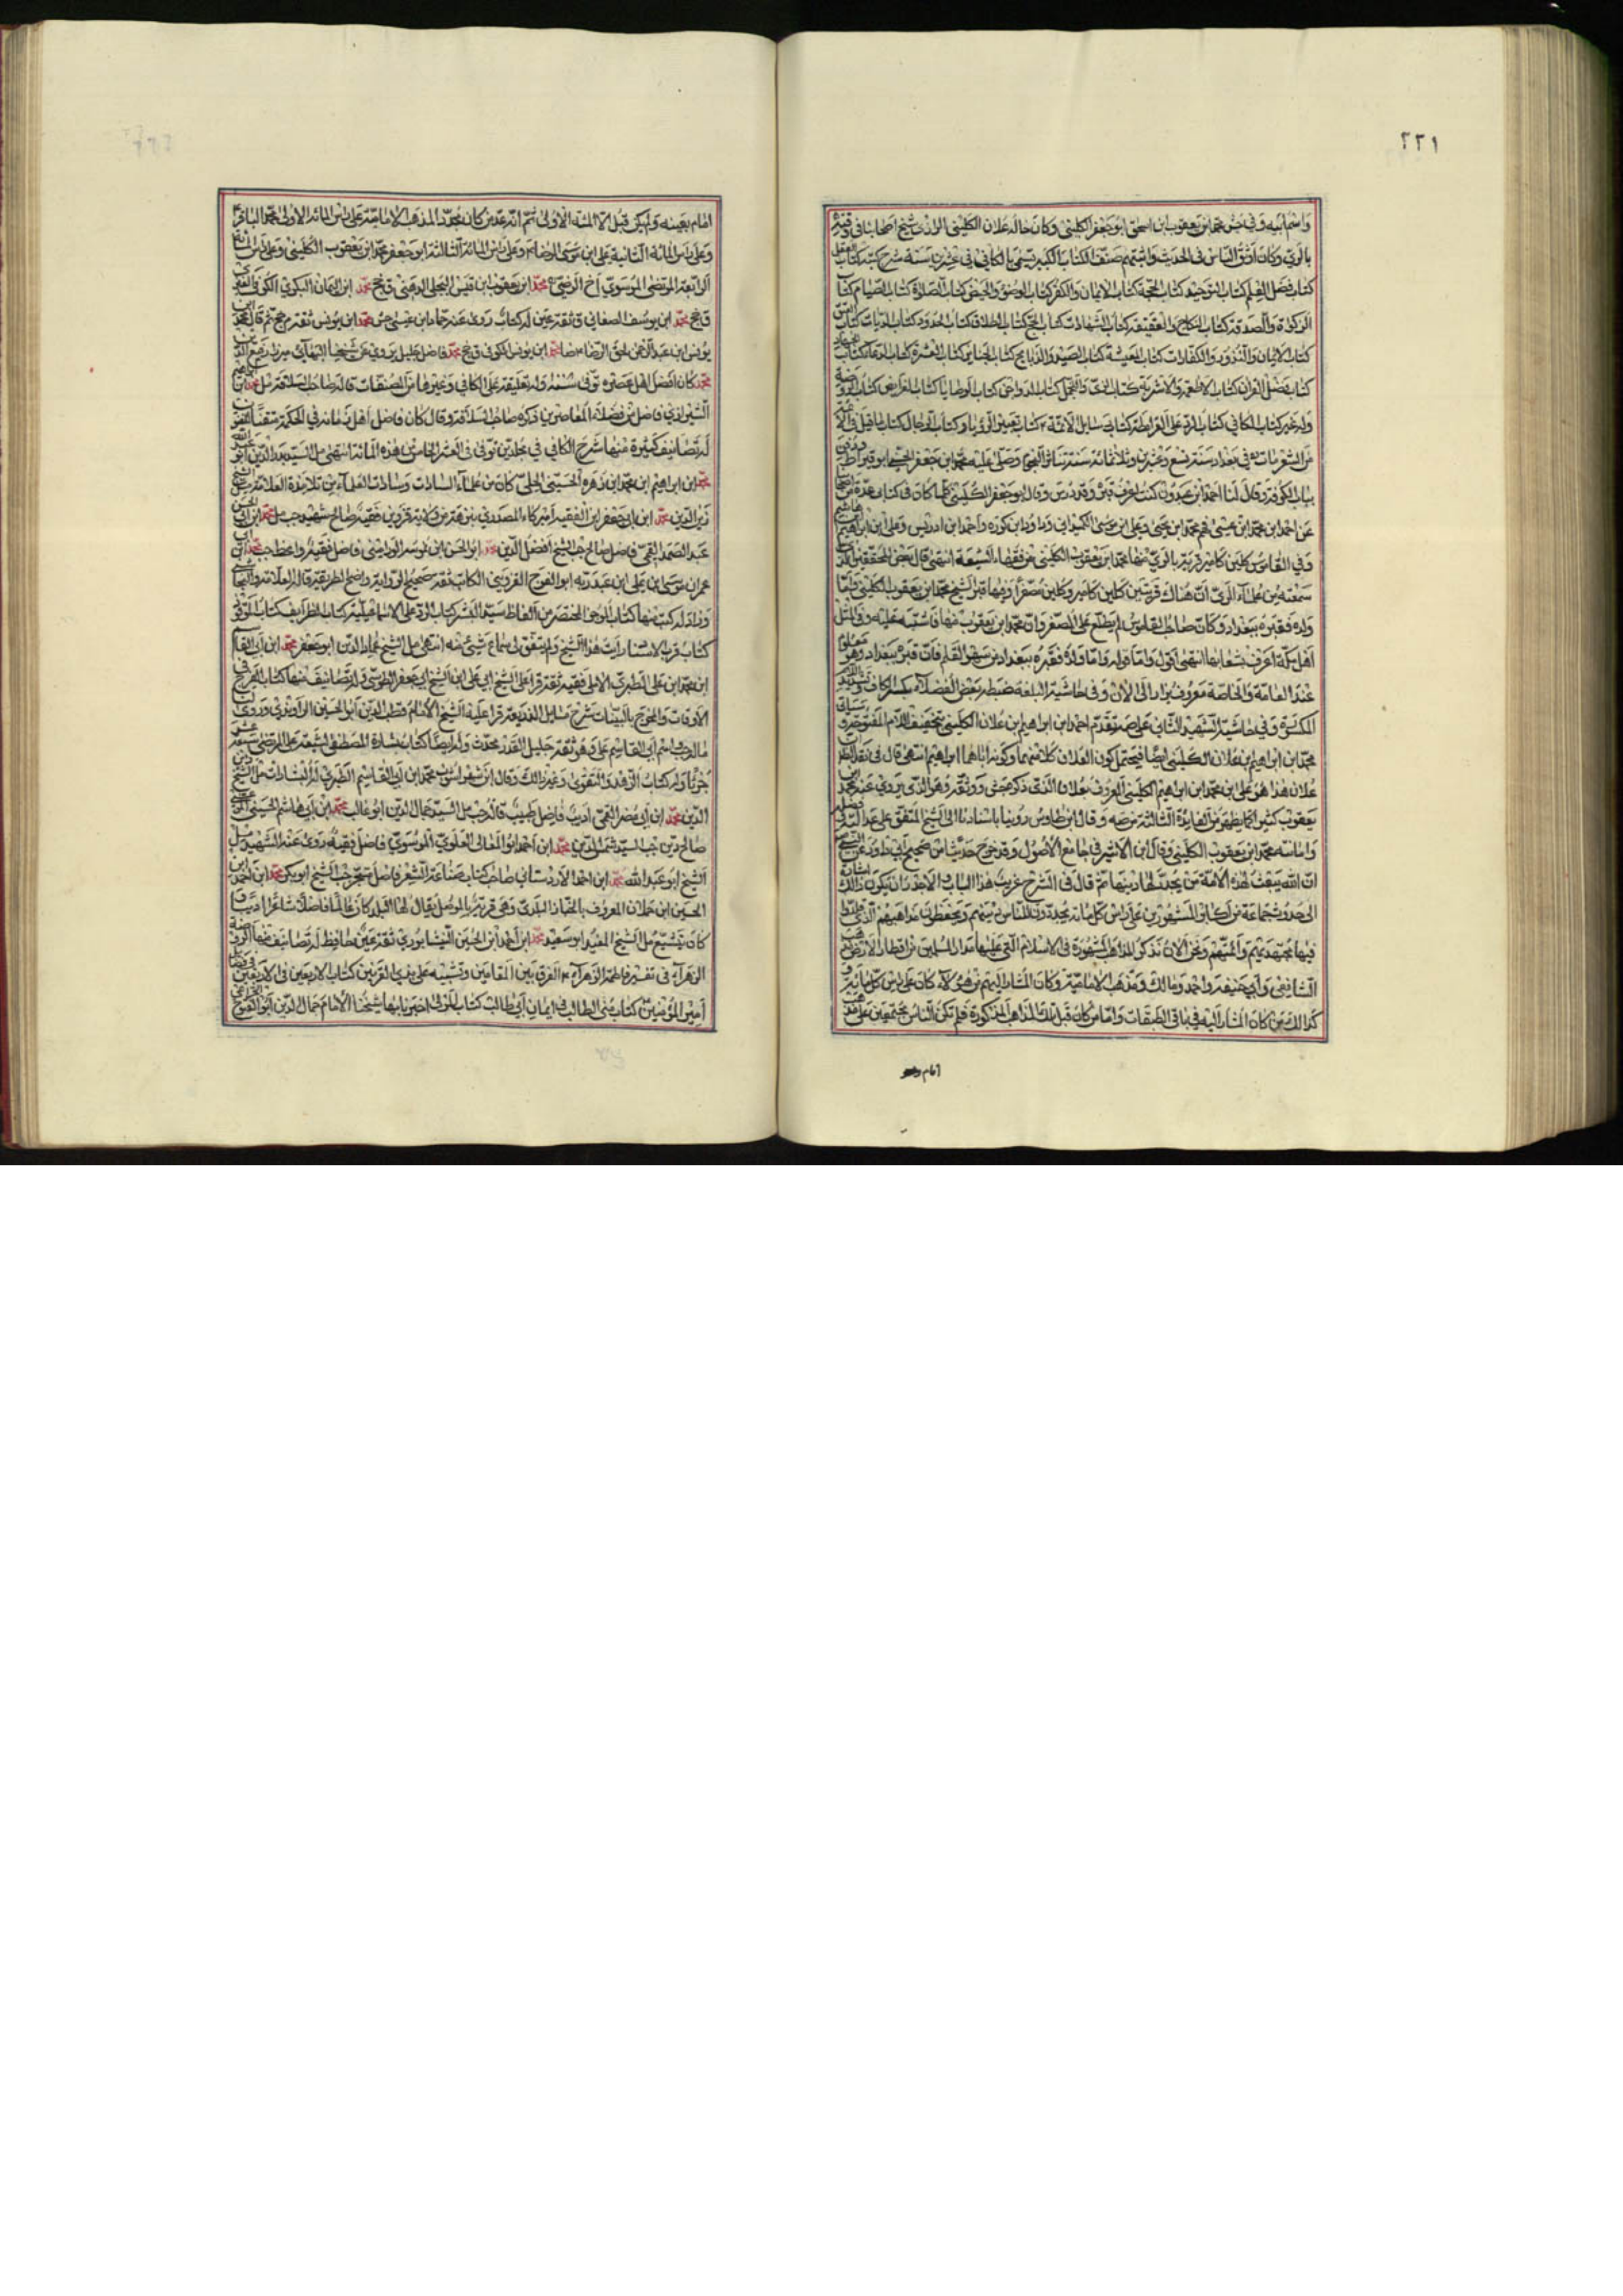 ٢٢١
واسم ابيه وفي جش محمد ابن يعقوب ابن اسحق ابو جعفر الكليني وكان خاله علان الكليني الرازي شيخ اصحابنا في وقته
بالري وكان اوثق الناس في الحديث واثبتهم صنف الكتاب الكبير يسمى بالكافي في عشرين سنة شرح كتبه كتاب العقل
كتاب فضل العلم كتاب التوحيد كتاب الحجة كتاب الايمان والكفر كتاب الوضوء والحيض كتاب الصلوة كتاب الصيام كتاب
الزكوة والصدقة كتاب النكاح والعقيقة كتاب الشهادات كتاب الحج كتاب الطلاق كتاب الحدود كتاب الديات كتاب
كتاب الايمان والنذور والكفارات كتاب المعيشة كتاب الصيد والذبايح كتاب الجنايز كتاب العشرة كتاب الدعا كتاب
كتاب فضل القران كتاب الاطعمة والاشربة كتاب الزي والتجمل كتاب الدواجن كتاب الوصايا كتاب الفرايض كتاب الروضة
وله غير كتاب الكافي كتاب الرد على القرامطة كتاب رسايل الائمة ع كتاب تعبير الرؤيا وكتاب الرجال كتاب ما قيل في الائمة
من الشعر مات ره في بغداد سنة تسع وعشرين وثلاثمائة سنة تناثر النجوم وصلى عليه محمد ابن جعفر الحسني ابو قيراط
بباب الكوفة وقال لنا احمد ابن عبدون كنت اعرف قبره وقد درس وقال ابو جعفر الكليني كلما كان في كتابي عدة من
عن احمد ابن محمد ابن عيسى فهم محمد ابن يحيى وعلي ابن موسى الكميذاني وداود ابن كورة واحمد ابن ادريس وعلي ابن ابراهيم
وفي القاموس كلين كامير قرية بالري منها محمد ابن يعقوب الكليني من فقهاء الشيعة انتهى قال بعض المحققين
سمعته من علماء الري ان هناك قريتين كلين كامير وكلين مصغرا وفيها قبر الشيخ محمد ابن يعقوب الكليني
والده فقبره ببغداد وكان صاحب القاموس لم يطلع على المصغر وان محمد ابن يعقوب منها فاشتبه عليه وفي المثل
اهل مكة اعرف بشعابها انتهى اقول واما قوله واما والده فقبره ببغداد من سهو القلم فان قبره ببغداد وهو
عند العامة والخاصة معروف يزار الى الان وفي حاشية البلغة ضبطه بعض الفضلاء بكسر الكاف وتشديد
المكسورة وفي حاشية الشهيد الثاني على صه تقدم احمد ابن ابراهيم ابن علان الكليني بتخفيف اللام المفتوحة
محمد ابن ابراهيم ابن علان الكليني ايضا فيحتمل كون العلان كلا منهما وكونه اباهما ابراهيم انتهى قال في نقد
علان هذا هو علي ابن محمد ابن ابراهيم الكليني المعروف بعلان الذي ذكره جش ووثقه وهو الذي يروي عنه محمد
يعقوب كثيرا كما يظهر من الفايدة الثالثة من صه وقال ابن طاوس روينا باسنادنا الى الشيخ المتفق على عدالته
وامانته محمد ابن يعقوب الكليني وقال ابن الاثير في جامع الاصول وقد خرج حديثا من صحيح ابي داود عن
ان الله يبعث لهذه الامة من يجدد لها دينها ثم قال في الشرح غريب هذا الباب والاجدر ان يكون ذالك
الى حدوث جماعة من اكابر المشهورين على راس كل مائة يجددون للناس دينهم ويحفظون مذاهبهم الذي قلدوا
فيها مجتهديهم وائمتهم ونحن الان نذكر المذاهب المشهورة في الاسلام التي عليها مدار المسلمين في اقطار الارض
الشافعي وابي حنيفة واحمد ومالك ومذهب الامامية وكان المشار اليهم من هؤلاء كان على راس كل مائة
كذالك من كان المشار اليه في باقي الطبقات واما من كان قبل تلك المذاهب المذكورة فلم تكن الناس مجتمعين على
امام
امام بعينه ولم يكن قبل المائة الاولى ثم انه عد من كان مجدد المذهب الامامية على راس المائة الاولى محمد الباقر
وعلى راس المائة الثانية علي ابن موسى الرضا وعلى راس المائة الثالثة ابو جعفر محمد ابن يعقوب الكليني وعلى راس المائة
الرابعة المرتضى الموسوي اخ الرضي محمد ابن يعقوب ابن قيس البجلي الدهني ق جخ محمد ابن اليمان البكري الكوفي
ق جخ محمد ابن يوسف الصنعاني ق ثقة عين له كتاب روى عنه حماد ابن عيسى جش محمد ابن يونس ثقة
يونس ابن عبد الرحمن لحق الرضا محمد ابن يونس الكوفي ق جخ محمد فاضل جليل يروي عن شيخنا البهائي ميرزا رفيع الدين
محمد كان افضل اهل عصره توفي وله تعليقة على الكافي وغيرها من المصنفات قاله صاحب السلافة مل محمد ابن
الشيرازي فاضل من فضلاء المعاصرين ذكره صاحب السلافة وقال كان فاضل اهل زمانه في الحكمة
له تصانيف كثيرة منها شرح الكافي في مجلدين توفي في العشر الخامس من هذه المائة انتهى مل السيد بدر الدين
محمد ابن ابراهيم ابن محمد ابن زهره الحسيني الحلبي كان من علماء السادات وسادات العلماء من تلامذة العلامة مل
زين الدين محمد ابن ابي جعفر ابن الفقيه اميركا المصدري فقيه صالح شهيد جب مل محمد ابن ابي
عبد الصمد القمي فاضل صالح جب الشيخ افضل الدين محمد ابن ابي الحسن فاضل فقيه واعظ جب محمد ابن
عمران موسى ابن علي ابن عبد ربه ابو الفرج القزويني الكاتب ثقة صحيح الرواية واضح الطريقة قاله العلامة والنجاشي
وزاد له كتب منها كتاب الموجز المختصر من الفاظ سيد البشر كتاب الرد على الاسماعيلية كتاب الطرايف
كتاب قرب الاسناد رايت هذا الشيخ ولم يتفق لي سماع شيئ منه انتهى مل الشيخ عماد الدين ابو جعفر محمد ابن ابي القاسم
ابن محمد ابن علي الطبري الاملي فقيه ثقة قرا على الشيخ ابي علي ابن الشيخ ابي جعفر الطوسي وله تصانيف منها كتاب الفرج في
الاوقات والمخرج بالبينات شرح مسايل الذريعة قرا عليه الشيخ الامام قطب الدين ابو الحسين الراوندي وروى لنا
واسم ابي القاسم علي وهو ثقة جليل القدر محدث وله ايضا كتاب بشارة المصطفى لشيعة علي المرتضى سبعة عشر
جزءا وله كتاب الزهد والتقوى وغير ذالك وقال ابن شهراشوب محمد ابن ابي القاسم الطبري له البشارات مل الشيخ
الدين محمد ابن ابي نصر القمي اديب فاضل طبيب قاله جب مل السيد جمال الدين ابو غالب محمد ابن ابي هاشم الحسيني
صالح دين جب السيد شمس الدين محمد ابن احمد ابو المعالي العلوي الموسوي فاضل فقيه روى عنه الشهيد مل
الشيخ ابو عبد الله محمد ابن احمد الاردستاني صاحب كتاب صناعة الشعر فاضل متبحر جب الشيخ ابو بكر محمد ابن احمد
الحسين ابن حمدان المعروف بالخباز البلدي وهي قرية بالموصل يقال لها البلد كان عالما فاضلا شاعرا اديبا
كان يتشيع مل الشيخ المفيد ابو سعيد محمد ابن احمد ابن الحسين النيشابوري ثقة عين حافظ له تصانيف منها الروضة
الزهراء في تفسير فاطمة الزهراء ع الفرق بين المقامين وتشبيه علي بذي القرنين كتاب الاربعين في
امير المؤمنين كتاب منى الطالب في ايمان ابي طالب كتاب المولى اخبرنا بها شيخنا الامام جمال الدين ابو الفتوح